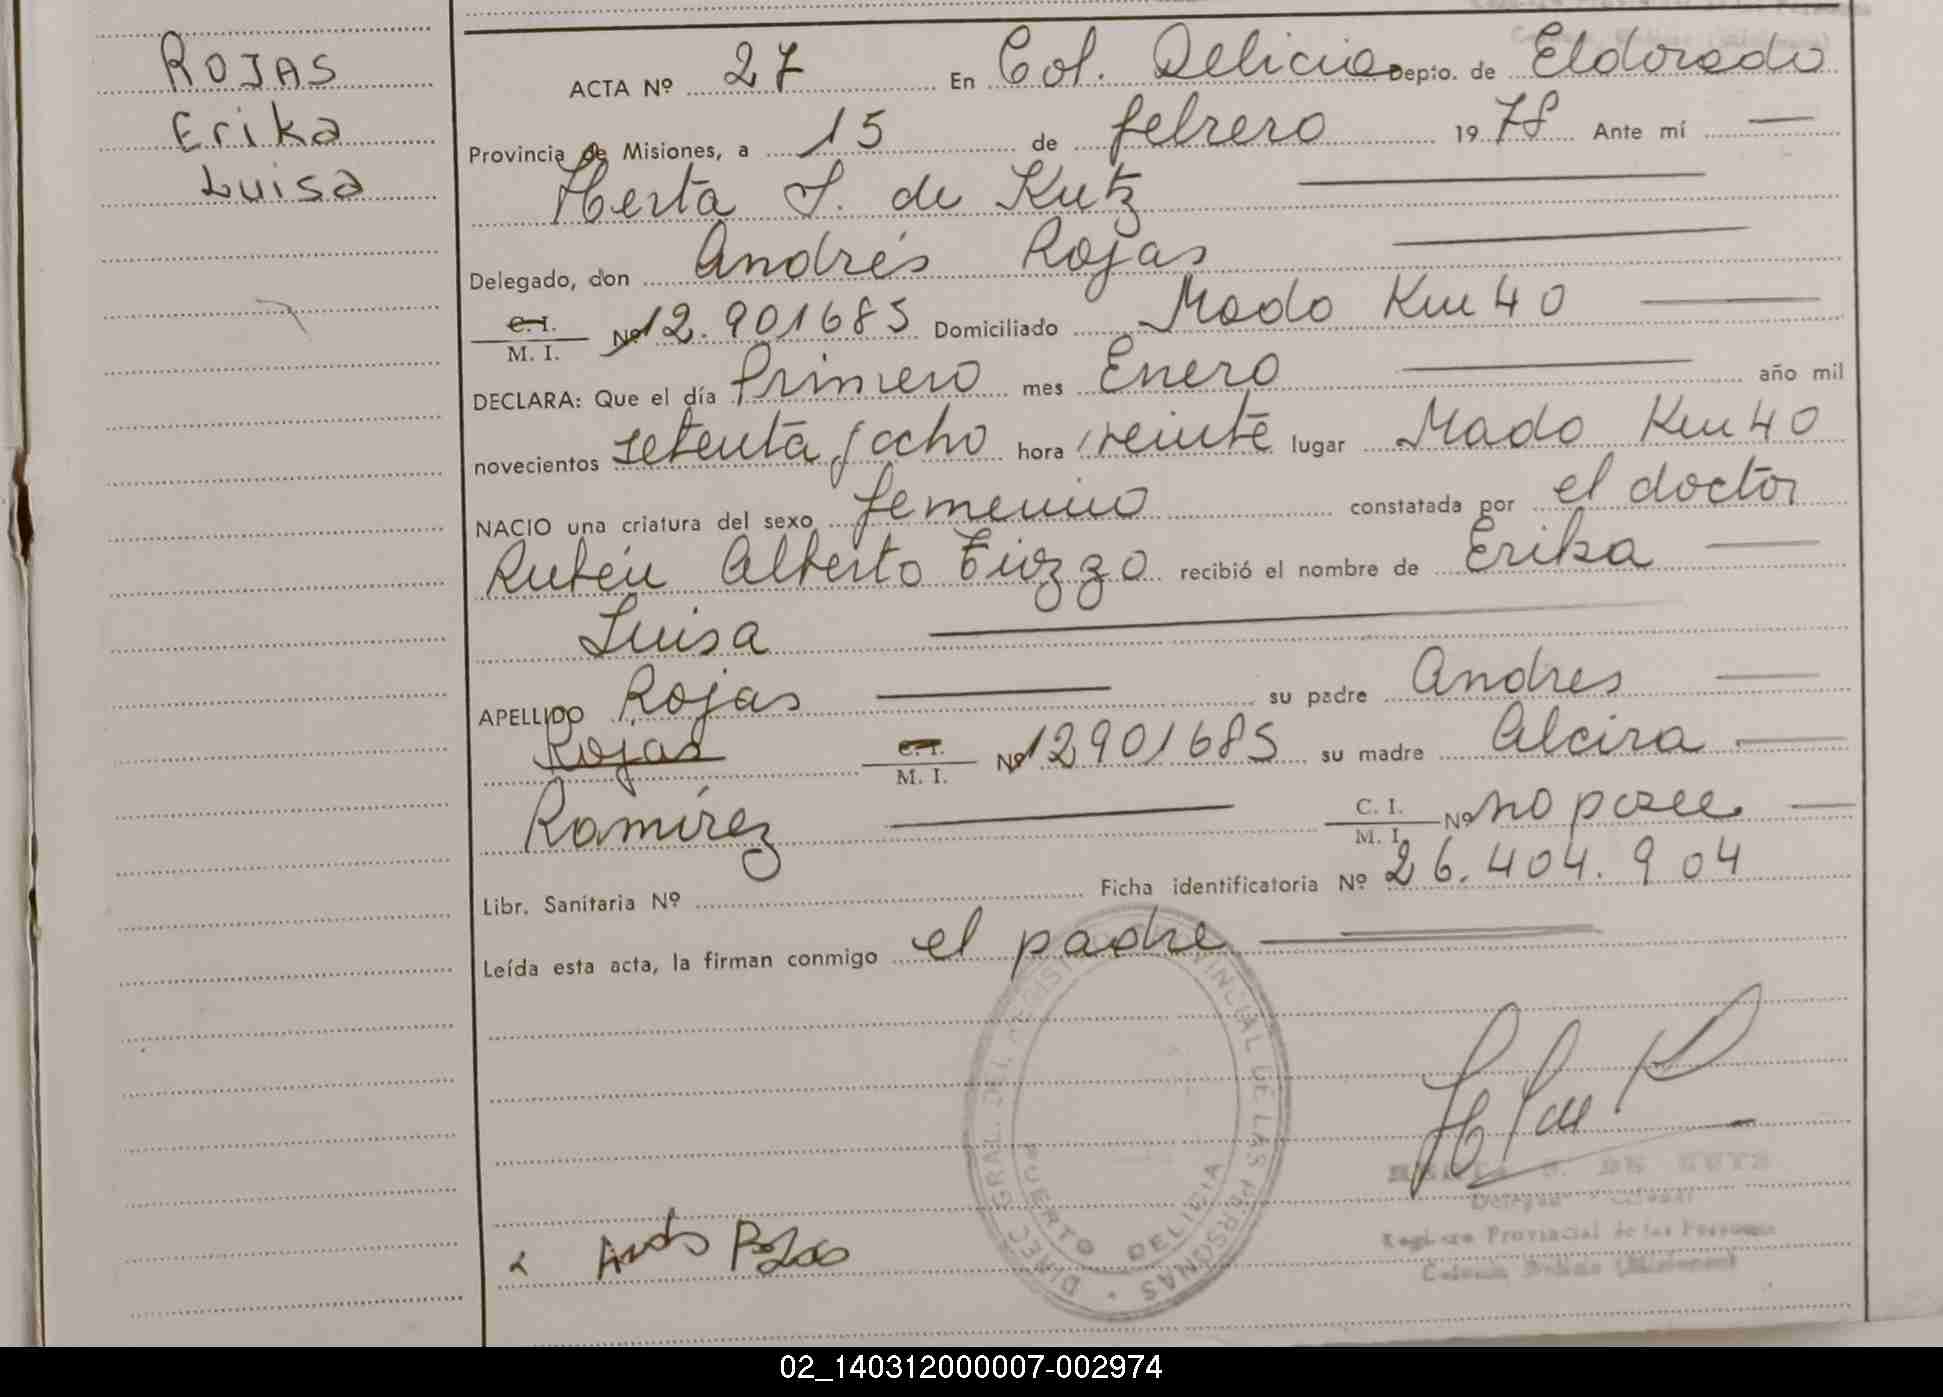 ROJAS
Erika
Luisa
ACTA Nº 27 En Col. Delicia Depto. de Eldorado
Provincia de Misiones, a 15 de febrero 1978 Ante mí
Herta S. de Kutz
Delegado, don Andrés Rojas
C. I.
M. I. Nº 12.901685 Domiciliado Mado Km 40
DECLARA: Que el día Primero mes Enero año mil
novecientos setenta y ocho hora veinte lugar Mado Km 40
NACIO una criatura del sexo femenino constatada por el doctor
Rubén Alberto Tiozzo recibió el nombre de Erika
Luisa
APELLIDO Rojas su padre Andres
Rojas C. I.
M. I. Nº 12901685 su madre Alcira
Ramírez C. I.
M. I. Nº no posee
Libr. Sanitaria Nº Ficha identificatoria Nº 26.404.904
Leída esta acta, la firman conmigo el padre
DIREC. GRAL. DEL REGISTRO PROVINCIAL DE LAS PERSONAS
PUERTO DELICIA
DE KUTZ
Registro Provincial de las Personas
Colonia Delicia (Misiones)
Rojas
02_140312000007-002974